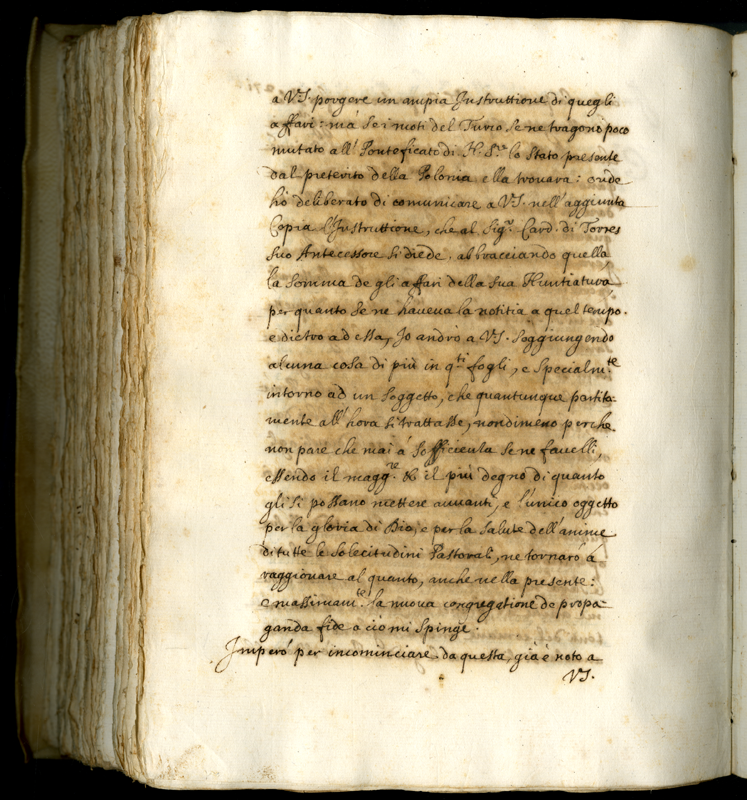 a VS. porgere un ampia Instruttione di quegli
affari: mà se i moti del Turco se ne tragono poco
mutato all' Ponteficato di N. S.re lo Stato presente
dal preterito della Polonia ella trovarà: onde
hò deliberato di comunicare a VS. nell'aggiunta
Copia l'Instruttione, che al Sig.r Card. di Torres
suo Antecessore si diede, abbracciando quella
la somma de gli affari della sua Nuntiatura
per quanto se ne haveva la notitia a quel tempo.
e dietro ad essa, Io andrò a VS. soggiungendo
alcuna cosa di più in q.ti fogli, e specialm.te
intorno ad un soggetto, che quantunque partita-
mente all'hora si trattasse, nondimeno perche
non pare che mai á sofficienza se ne favelli,
essendo il magg.re & il più degno di quanto
gli si possano mettere avvanti, e l'unico oggetto
per la gloria di Dio, e per la salute dell'anime
di tutte le solecitudini Pastorali, ne tornarò à
raggionare al quanto, anche nella presente:
e massimam.te la nuova congregatione de propa-
ganda fide a ciò mi spinge.
Imperò per incominciare da questa, già è noto a
VS.